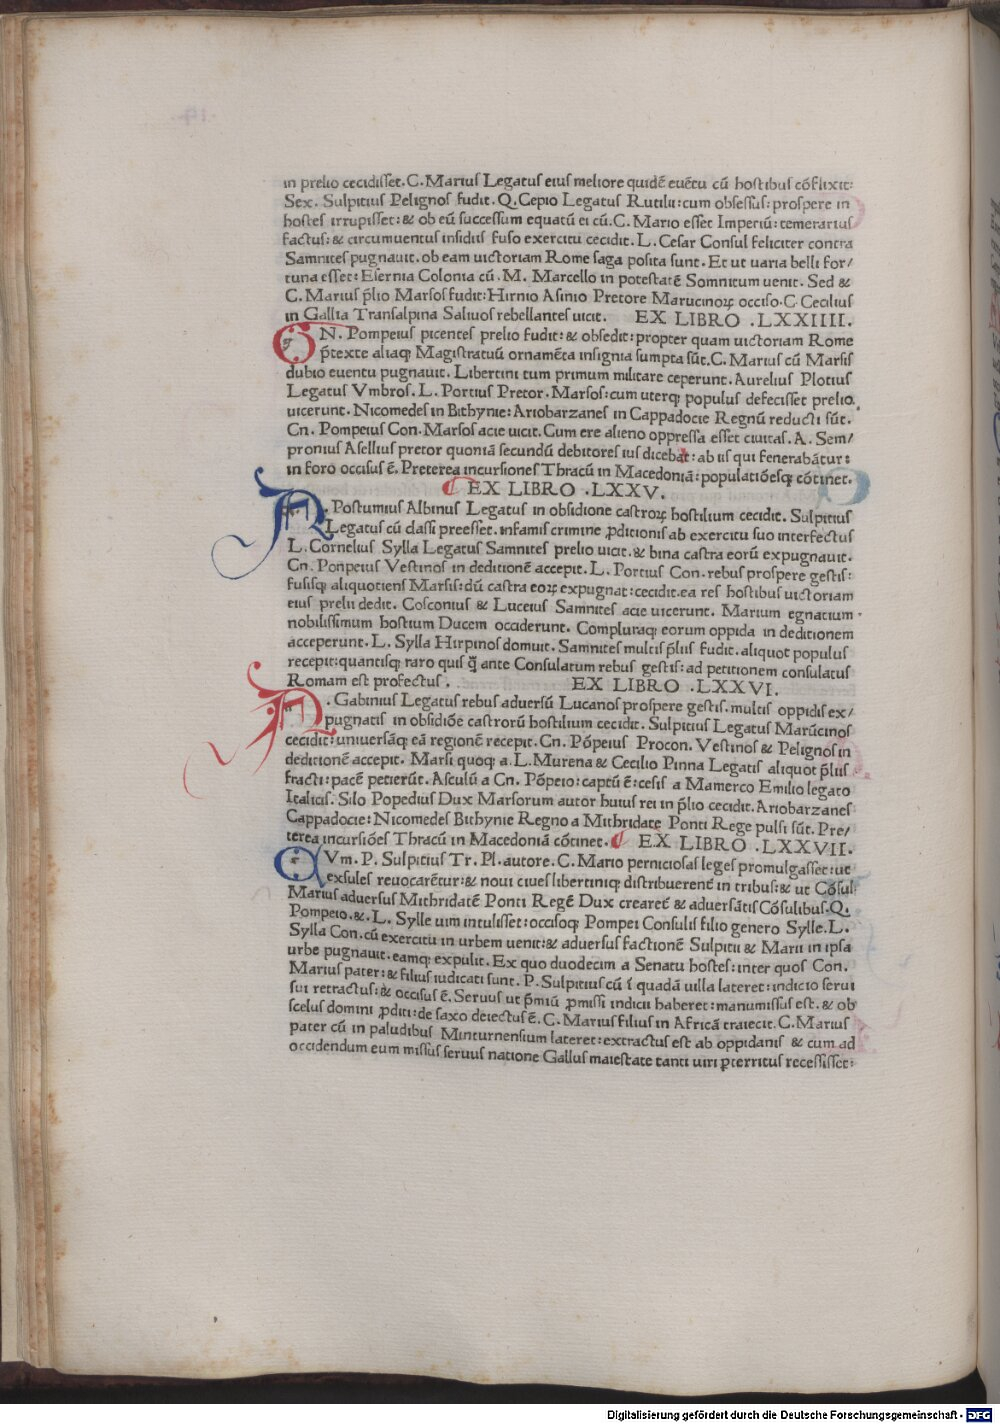 in prelio cecidisset. C. Marius Legatus eius meliore quidē euētu cū hostibus cōflixit:
Sex. Sulpitius Pelignos fudit. Q. Cepio Legatus Rutilii: cum obsessus: prospere in
hostes irrupisset: & ob eū successum equatū ei cū. C. Mario esset Imperiū: temerarius
factus: & circumuentus insidiis fuso exercitu cecidit. L. Cesar Consul feliciter contra
Samnites pugnauit. ob eam uictoriam Rome saga posita sunt. Et ut uaria belli for/
tuna esset: Esernia Colonia cū. M. Marcello in potestatē Somnitum uenit. Sed &
C. Marius p̄lio Marsos fudit: Hirnio Asinio Pretore Marucinoꝝ occiso. C Cecilius
in Gallia Transalpina Saliuos rebellantes uicit. EX LIBRO .LXXIIII.
GN. Pompeius picentes prelio fudit: & obsedit: propter quam uictoriam Rome
p̄texte aliaqꝫ Magistratuū ornamēta insignia sumpta sūt. C. Marius cū Marsis
dubio euentu pugnauit. Libertini tum primum militare ceperunt. Aurelius Plotius
Legatus Vmbros. L. Portius Pretor. Marsos: cum uterqꝫ populus defecisset prelio.
uicerunt. Nicomedes in Bithynie: Ariobarzanes in Cappadocie Regnū reducti sūt.
Cn. Pompeius Con. Marsos acie uicit. Cum ere alieno oppressa esset ciuitas. A. Sem/
pronius Asellius pretor quoniā secundū debitores ius dicebat: ab iis qui fenerabātur:
in foro occisus ē. Preterea incursiones Thracū in Macedoniā: populatiōesqꝫ cōtinet.
EX LIBRO .LXXV.
A. Postumius Albinus Legatus in obsidione castroꝝ hostilium cecidit. Sulpitius
Legatus cū classi preesset. infamis crimine ꝓditionis ab exercitu suo interfectus
L. Cornelius Sylla Legatus Samnites prelio uicit. & bina castra eorū expugnauit.
Cn. Ponpeius Vestinos in deditionē accepit. L. Portius Con. rebus prospere gestis:
fusisqꝫ aliquotiens Marsis: dū castra eoꝝ expugnat: cecidit. ea res hostibus uictoriam
eius prelii dedit. Cosconius & Luceius Samnites acie uicerunt. Marium egnatium
nobilissimum hostium Ducem occiderunt. Compluraqꝫ eorum oppida in deditionem
acceperunt. L. Sylla Hirpinos domuit. Samnites multis p̄liis fudit. aliquot populus
recepit: quantisqꝫ raro quis q̄̃ ante Consulatum rebus gestis: ad petitionem consulatus
Romam est profectus. EX LIBRO .LXXVI.
A. Gabinius Legatus rebus aduersū Lucanos prospere gestis. multis oppidis ex/
pugnatis in obsidiōe castrorū hostilium cecidit. Sulpitius Legatus Marūcinos
cecidit: uniuersāqꝫ eā regionē recepit. Cn. Pōpeius Procon. Vestinos & Pelignos in
deditionē accepit. Marsi quoqꝫ a. L. Murena & Cecilio Pinna Legatis aliquot p̄liis
fracti: pacē petierūt. Asculū a Cn. Pōpeio: captū ē: cesis a Mamerco Emilio legato
Italicis. Silo Popedius Dux Marsorum autor huius rei in p̄lio cecidit. Ariobarzanes
Cappadocie: Nicomedes Bithynie Regno a Mithridate Ponti Rege pulsi sūt. Pre/
terea incursiōes Thracū in Macedoniā cōtinet. EX LIBRO .LXXVII.
QVm. P. Sulpitius Tr. Pl. autore. C. Mario perniciosas leges promulgasset: ut
exsules reuocarētur: & noui ciues libertiniqꝫ distribuerent̄ in tribus: & ut Cōsul
Marius aduersus Mithridatē Ponti Regē Dux crearet̄ & aduersātis Cōsulibus. Q.
Pompeio. &. L. Sylle uim intulisset: occisoqꝫ Pompei Consulis filio genero Sylle. L.
Sylla Con. cū exercitu in urbem uenit: & aduersus factionē Sulpitii & Marii in ipsa
urbe pugnauit. eamqꝫ expulit. Ex quo duodecim a Senatu hostes: inter quos Con.
Marius pater: & filius iudicati sunt. P. Sulpitius cū ī quadā uilla lateret: indicio serui
sui retractus: & occisus ē. Seruus ut p̄miū ꝓmissi indicii haberet: manumissus est. & ob
scelus domini ꝓditi: de saxo deiectus ē. C. Marius filius in Africā traiecit. C. Marius
pater cū in paludibus Minturnensium lateret: extractus est ab oppidanis & cum ad
occidendum eum missus seruus natione Gallus maiestate tanti uiri ꝑterritus recessisset:
Digitalisierung gefördert durch die Deutsche Forschungsgemeinschaft - DFG